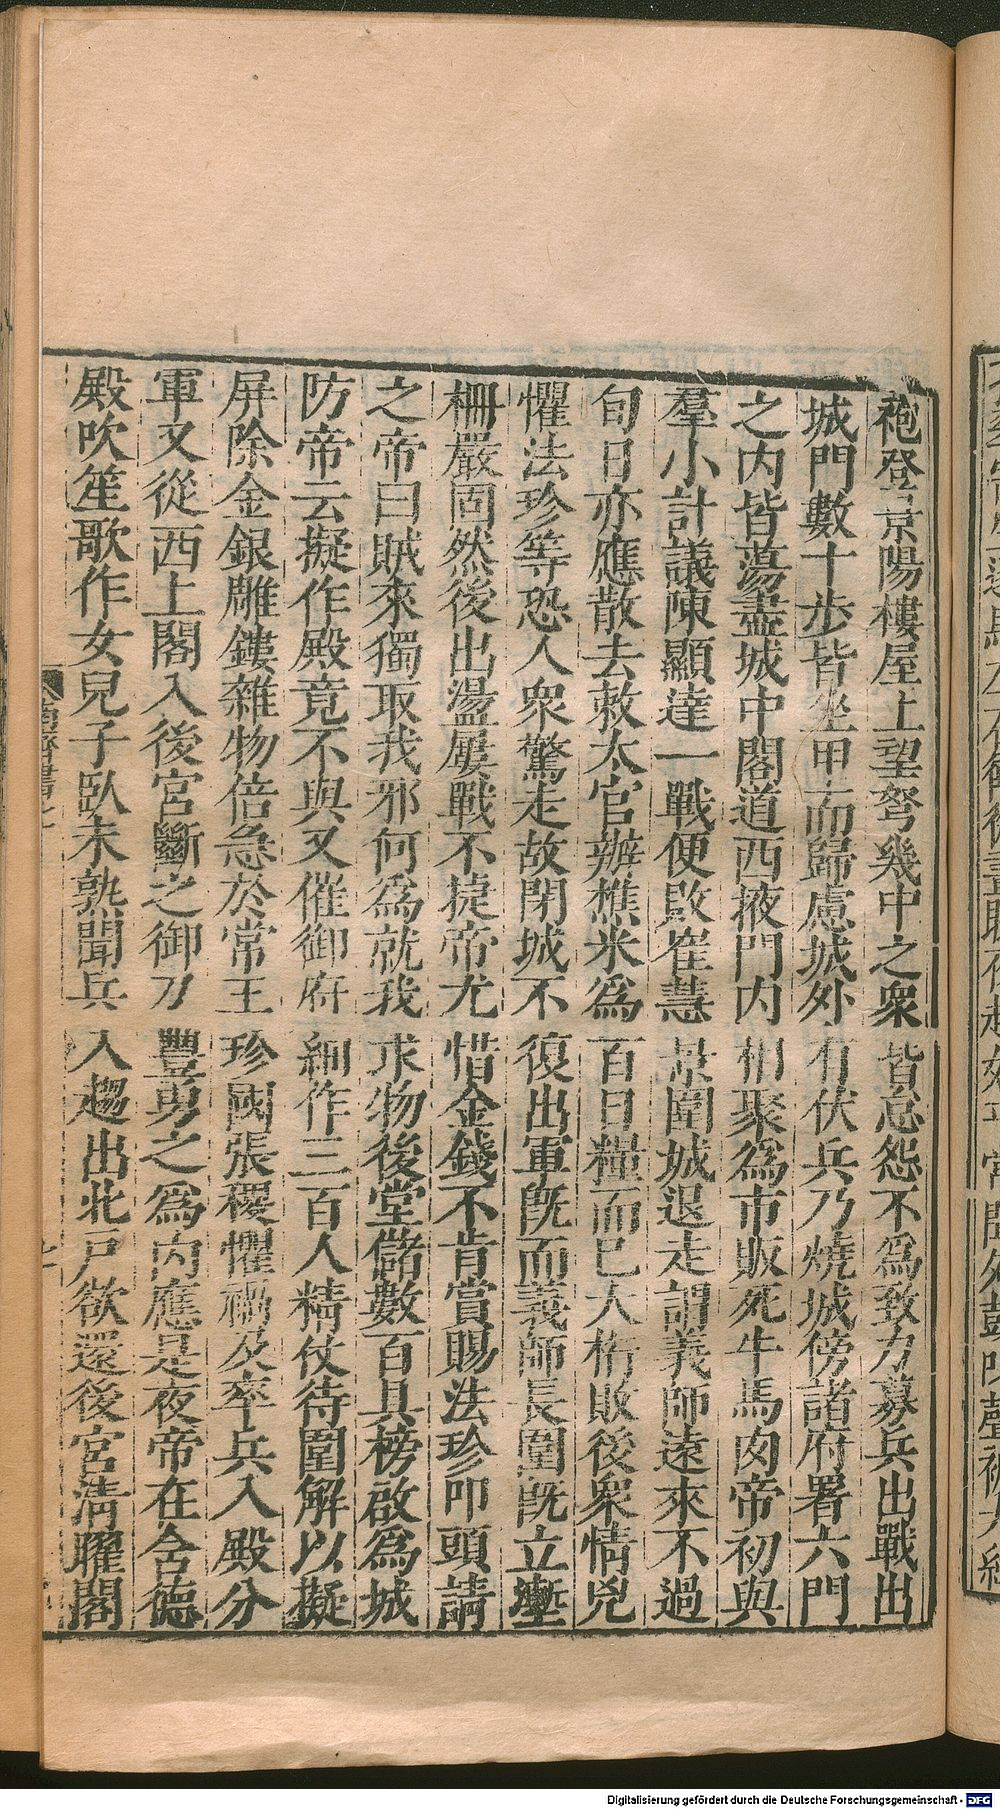 袍登景陽樓屋上望弩幾中之衆皆怠怨不爲致力募兵出戰出
城門數十步皆坐甲而歸慮城外有伏兵乃燒城傍諸府署六門
之內皆蕩盡城中閣道西掖門內相聚爲市販死牛馬肉帝初與
羣小計議陳顯達一戰便敗崔慧景圍城退走謂義師遠來不過
旬日亦應散去敕太官辦樵米爲百日糧而已大桁敗後衆情兇
懼法珍等恐人衆驚走故閉城不復出軍旣而義師長圍旣立塹
柵嚴固然後出盪屢戰不捷帝尤惜金錢不肯賞賜法珍叩頭請
之帝曰賊來獨取我邪何爲就我求物後堂儲數百具榜啟爲城
防帝云擬作殿竟不與又催御府細作三百人精仗待圍解以擬
屏除金銀雕鏤雜物倍急於常王珍國張稷懼禍及率兵入殿分
軍又從西上閣入後宮斷之御刀豐勇之爲內應是夜帝在含德
殿吹笙歌作女兒子臥未熟聞兵入趨出北戶欲還後宮清曜閣
南齊書七
七
Digitalisierung gefördert durch die Deutsche Forschungsgemeinschaft - DFG